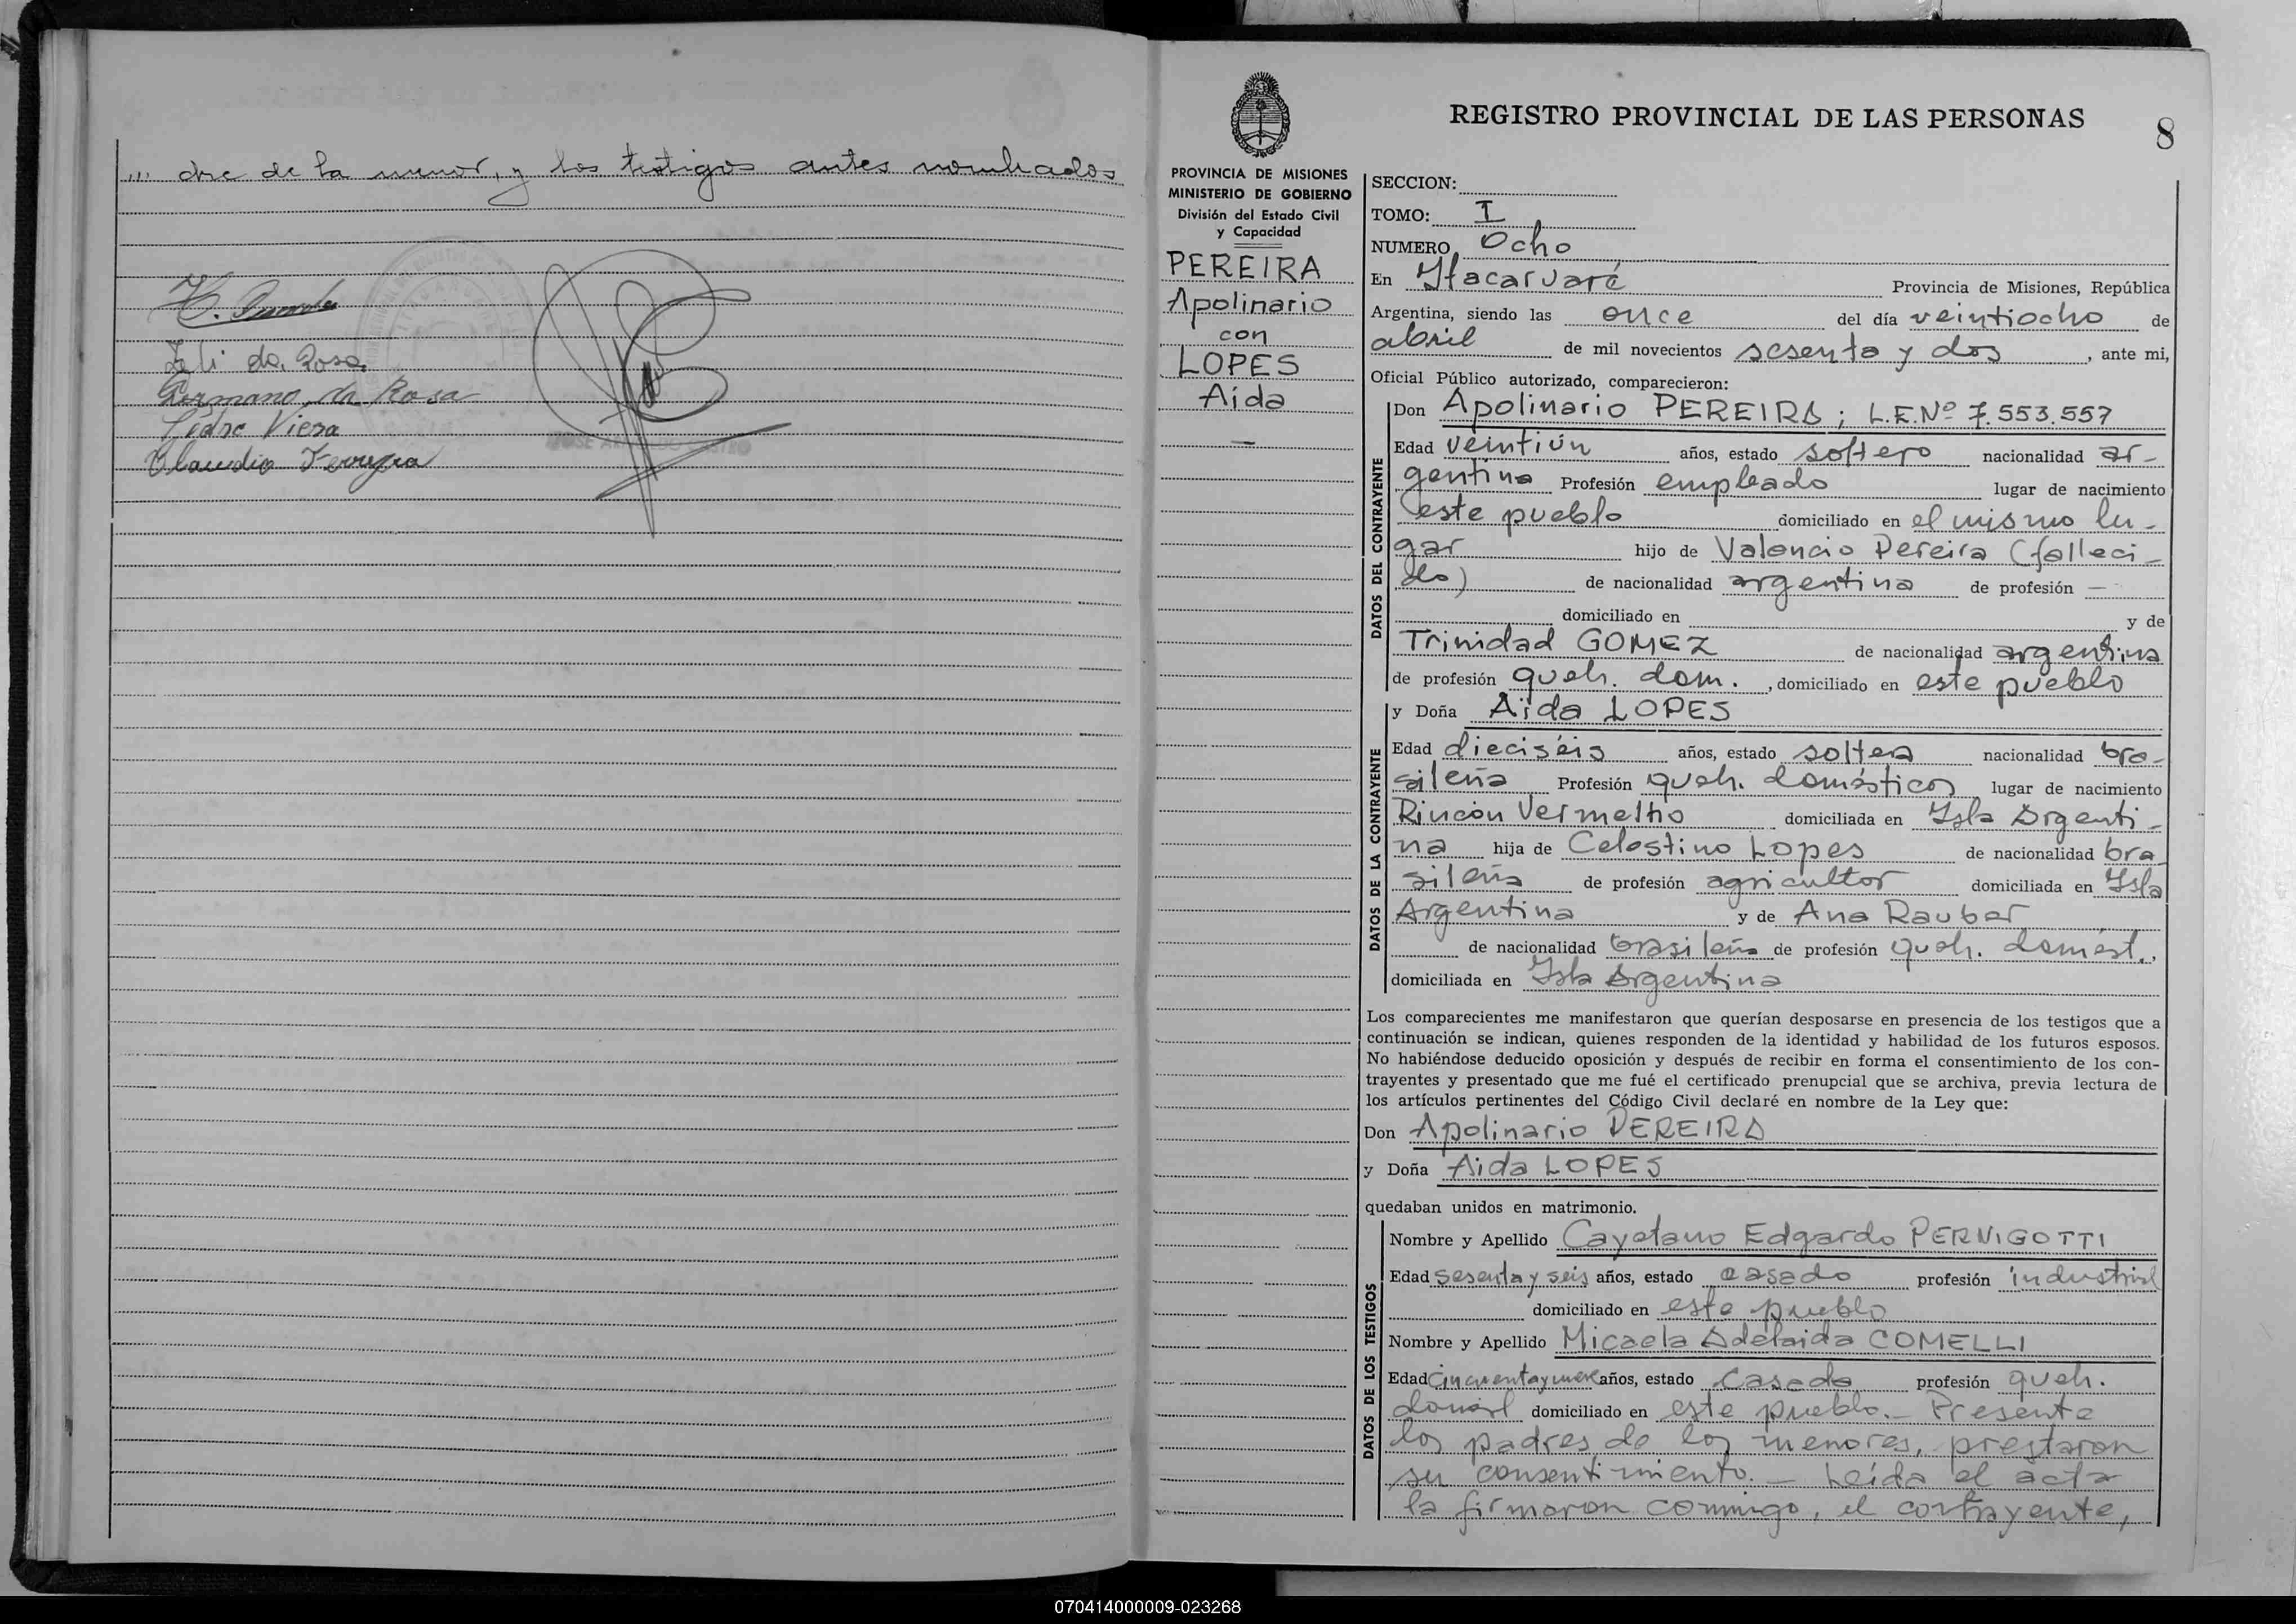 ... dre de la menor, y los testigos antes nombrados
Germano da Rosa
Pedro Viera
Claudio Ferreyra
REGISTRO PROVINCIAL DE LAS PERSONAS
8
PROVINCIA DE MISIONES
MINISTERIO DE GOBIERNO
División del Estado Civil
y Capacidad
PEREIRA
Apolinario
con
LOPES
Aida
—
SECCION:
TOMO: I
NUMERO Ocho
En Itacaruaré Provincia de Misiones, República
Argentina, siendo las once del día veintiocho de
abril de mil novecientos sesenta y dos, ante mi,
Oficial Público autorizado, comparecieron:
DATOS DEL CONTRAYENTE
Don Apolinario PEREIRA; L.E.Nº 7.553.557
Edad veintiún años, estado soltero nacionalidad ar-
gentina Profesión empleado lugar de nacimiento
este pueblo domiciliado en el mismo lu-
gar hijo de Valencio Pereira (falleci-
do) de nacionalidad argentina de profesión —
domiciliado en y de
Trinidad GOMEZ de nacionalidad argentina
de profesión queh. dom. , domiciliado en este pueblo
DATOS DE LA CONTRAYENTE
y Doña Aida LOPES
Edad dieciséis años, estado soltera nacionalidad bra-
sileña Profesión queh. domésticos lugar de nacimiento
Rincón Vermelho domiciliada en Isla Argenti-
na hija de Celestino Lopes de nacionalidad bra
sileña de profesión agricultor domiciliada en Isla
Argentina y de Ana Rauber
de nacionalidad brasileña de profesión queh. domést.,
domiciliada en Isla Argentina
Los comparecientes me manifestaron que querían desposarse en presencia de los testigos que a
continuación se indican, quienes responden de la identidad y habilidad de los futuros esposos.
No habiéndose deducido oposición y después de recibir en forma el consentimiento de los con-
trayentes y presentado que me fué el certificado prenupcial que se archiva, previa lectura de
los artículos pertinentes del Código Civil declaré en nombre de la Ley que:
Don Apolinario PEREIRA
y Doña Aida LOPES
quedaban unidos en matrimonio.
DATOS DE LOS TESTIGOS
Nombre y Apellido Cayetano Edgardo PERNIGOTTI
Edad sesenta y seis años, estado casado profesión industrial
domiciliado en este pueblo
Nombre y Apellido Micaela Adelaida COMELLI
Edad cincuenta y nueve años, estado casada profesión queh.
domést domiciliado en este pueblo.- Presente
los padres de los menores, prestaron
su consentimiento. — Leída el acta
la firmaron conmigo, el contrayente,
070414000009-023268